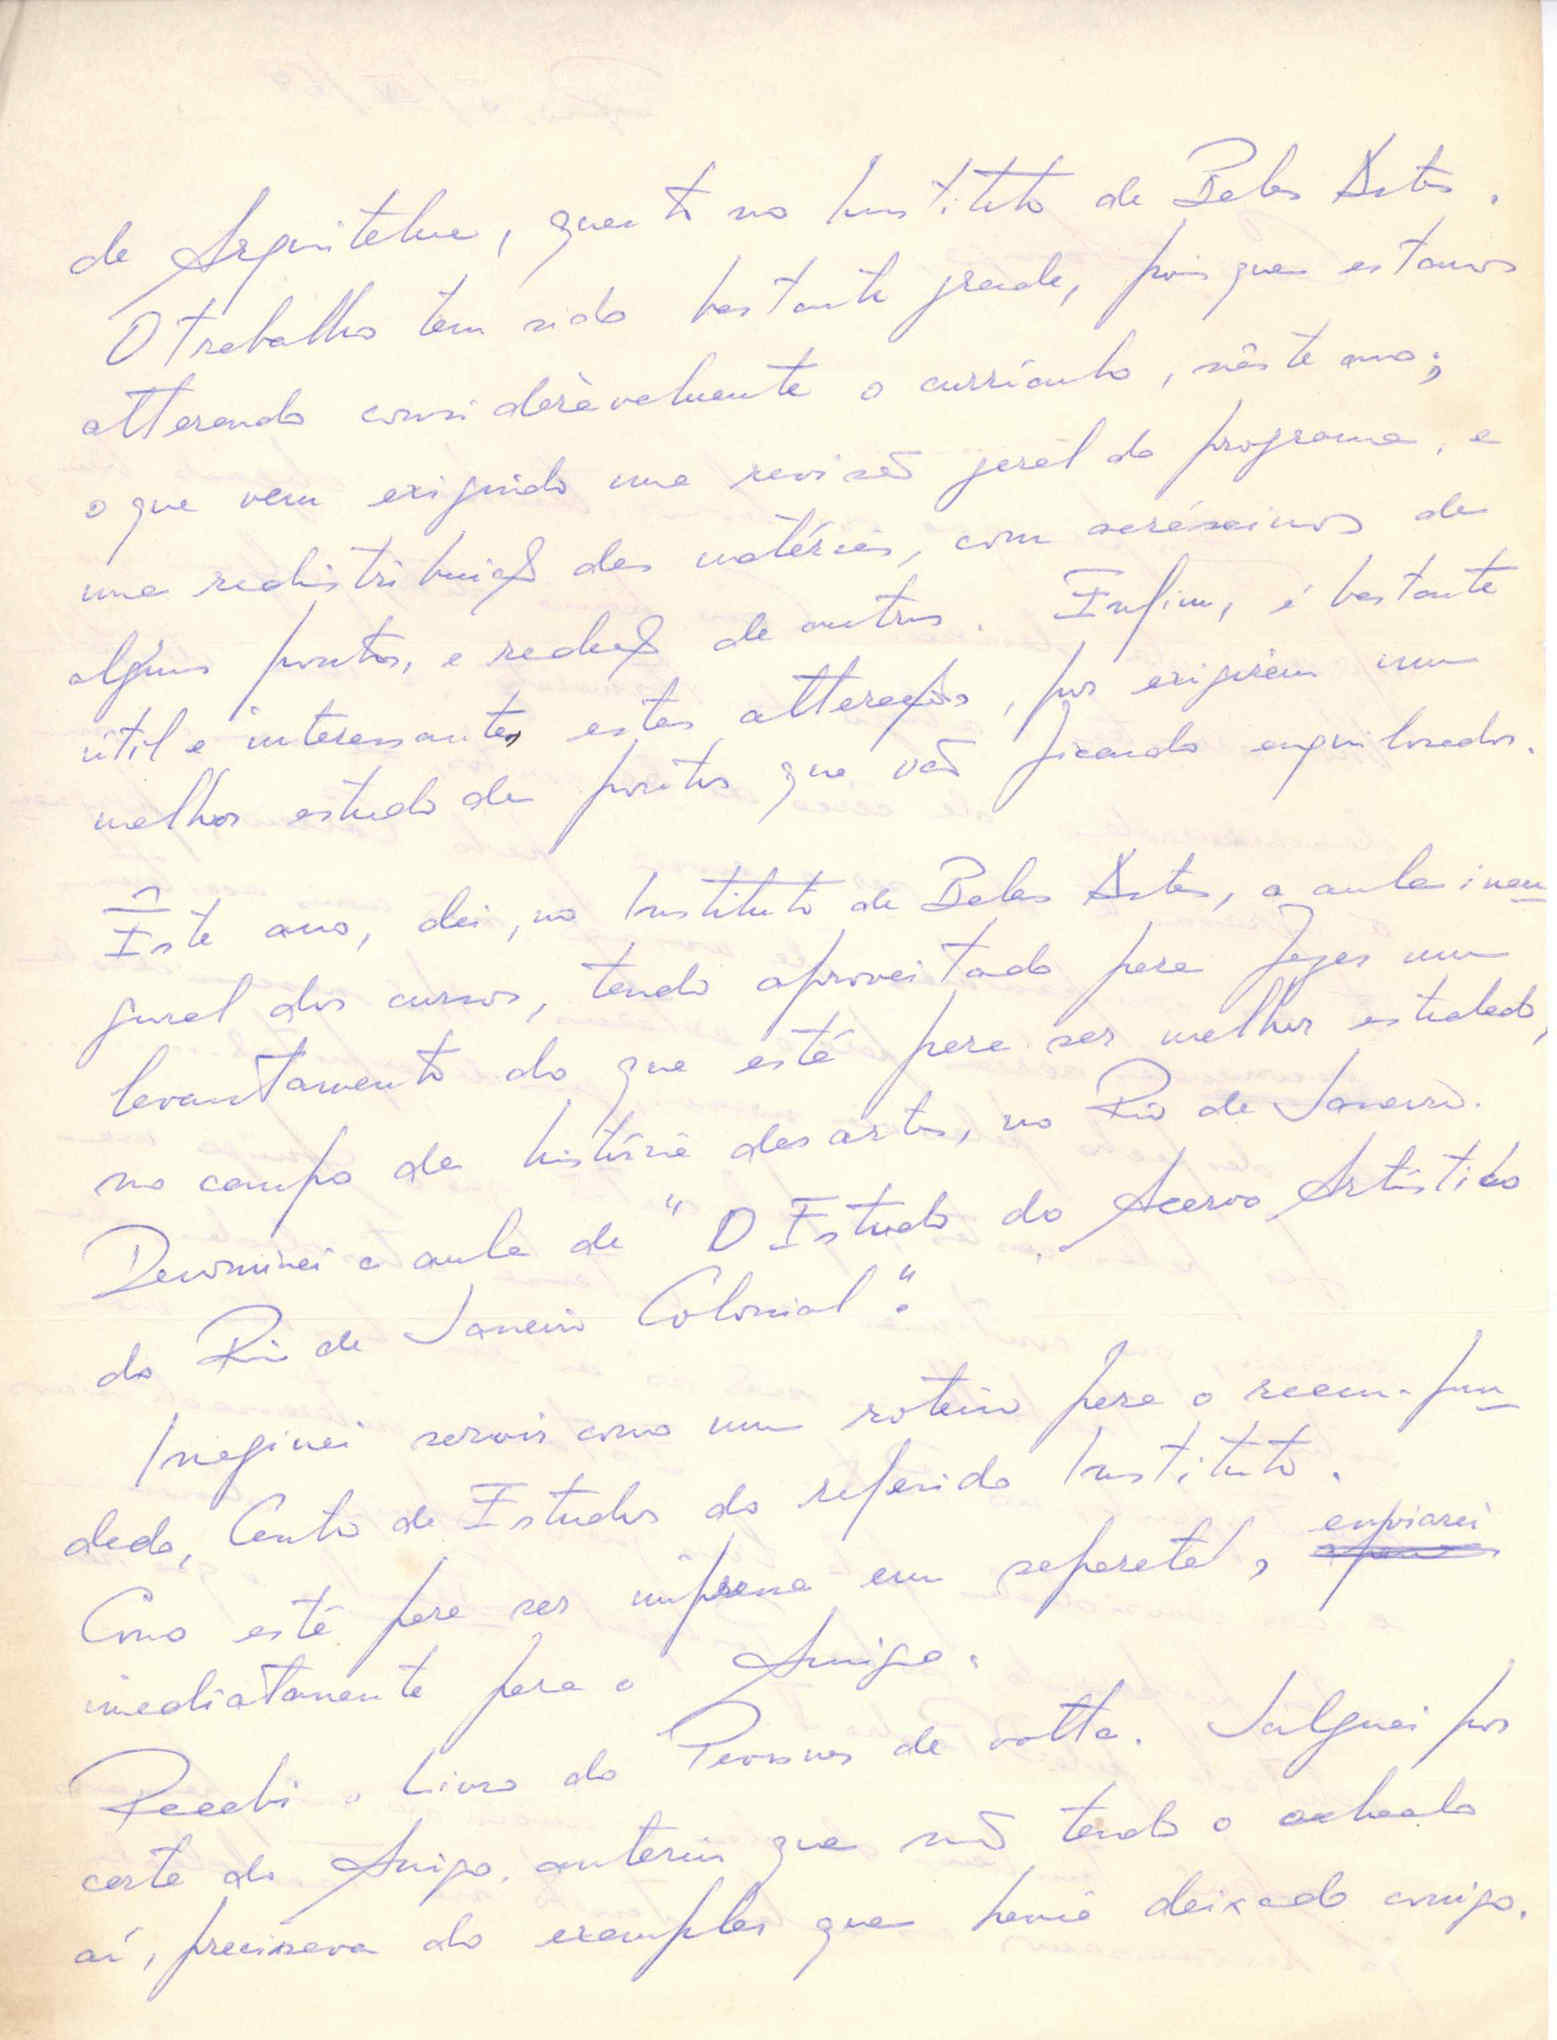 de Arquitetura, quanto no Instituto de Belas Artes.
O trabalho tem sido bastante grande, pois que estamos
alterando consideràvelmente o currículo, nêste ano;
o que vem exigindo uma revisão geral do programa, e
uma redistribuição das matérias, com acréscimos de
alguns pontos, e redução de outros. Enfim, é bastante
útil e interessante, estas alterações, por exigirem um
melhor estudo de pontos que vão ficando enquilosados.
Êste ano, dei, no Instituto de Belas Artes, a aula inau
gural dos cursos, tendo aproveitado para fazer um
levantamento do que está para ser melhor estudado,
no campo da história das artes, no Rio de Janeiro.
Denominei a aula de "O Estudo do Acervo Artístico
do Rio de Janeiro Colonial".
Imaginei servir como um roteiro para o recem-fun
dado, Centro de Estudos do referido Instituto.
Como está para ser impressa em separata, enviarei
imediatamente para o Amigo.
Recebi o livro do Pevsner de volta. Julguei por
carta do Amigo, anterior que não tendo o achado
aí, precisava do exemplar que havia deixado comigo.